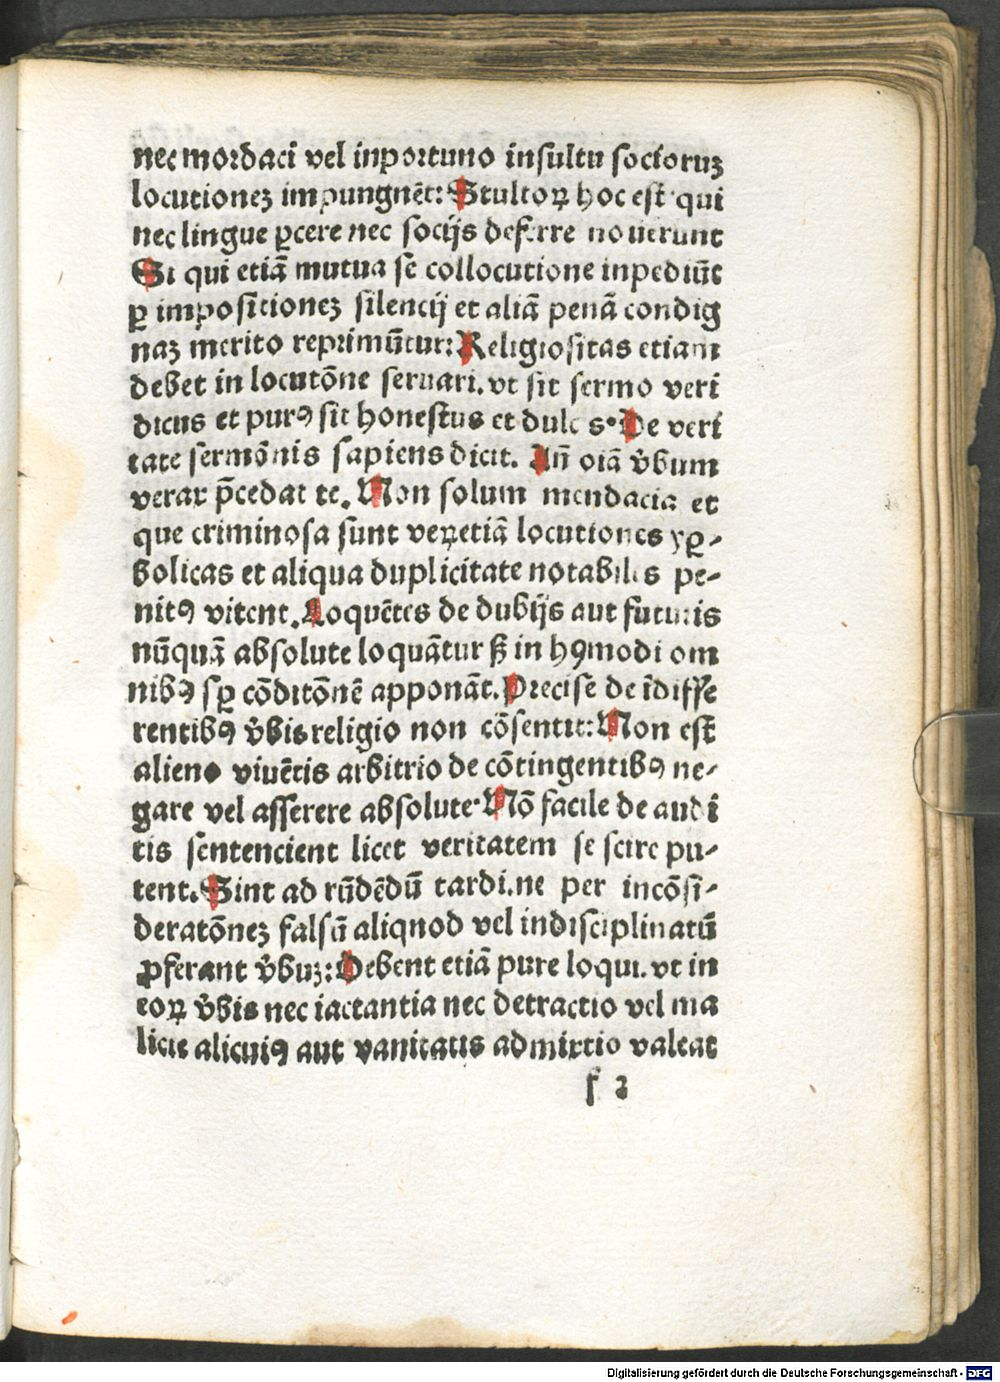 nec mordaci vel inportuno insultu socioruꝫ
locutioneꝫ impungnēt: Stultoꝝ hoc est qui
nec lingue ꝑcere nec socijs deferre nouerunt
Si qui etiā mutua se collocutione inpediūt
ꝑ impositioneꝫ silencij et aliā penā condig
naꝫ merito reprimūtur: Religiositas etiam
debet in locutōne seruari. vt sit sermo veri
dicus et purꝯ sit honestus et dulc s. De veri
tate sermōnis sapiens dicit. Añ oīā v̄bum
verax p̄cedat te. Non solum mendacia et
que criminosa sunt veꝝetiā locutiones yꝑ-
bolicas et aliqua duplicitate notabiles pe-
nitꝯ vitent. Loquētes de dubijs aut futuris
nūquā absolute loquātur ß in hꝯmodi om
nibꝯ sꝑ cōditōnē apponāt. Precise de īdiffe
rentibꝯ v̄bis religio non cōsentit: Non est
alieno viuētis arbitrio de cōtingentibꝯ ne-
gare vel asserere absolute. Nō facile de audi
tis sentencient licet veritatem se scire pu-
tent. Sint ad rn̄dēdū tardi. ne per incōsi-
deratōneꝫ falsū aliqnod vel indisciplinatū
ꝓferant v̄buꝫ: Debent etiā pure loqui. vt in
eoꝝ v̄bis nec iactantia nec detractio vel ma
licie alicuiꝯ aut vanitatis admixtio valeat
f 2
Digitalisierung gefördert durch die Deutsche Forschungsgemeinschaft - DFG